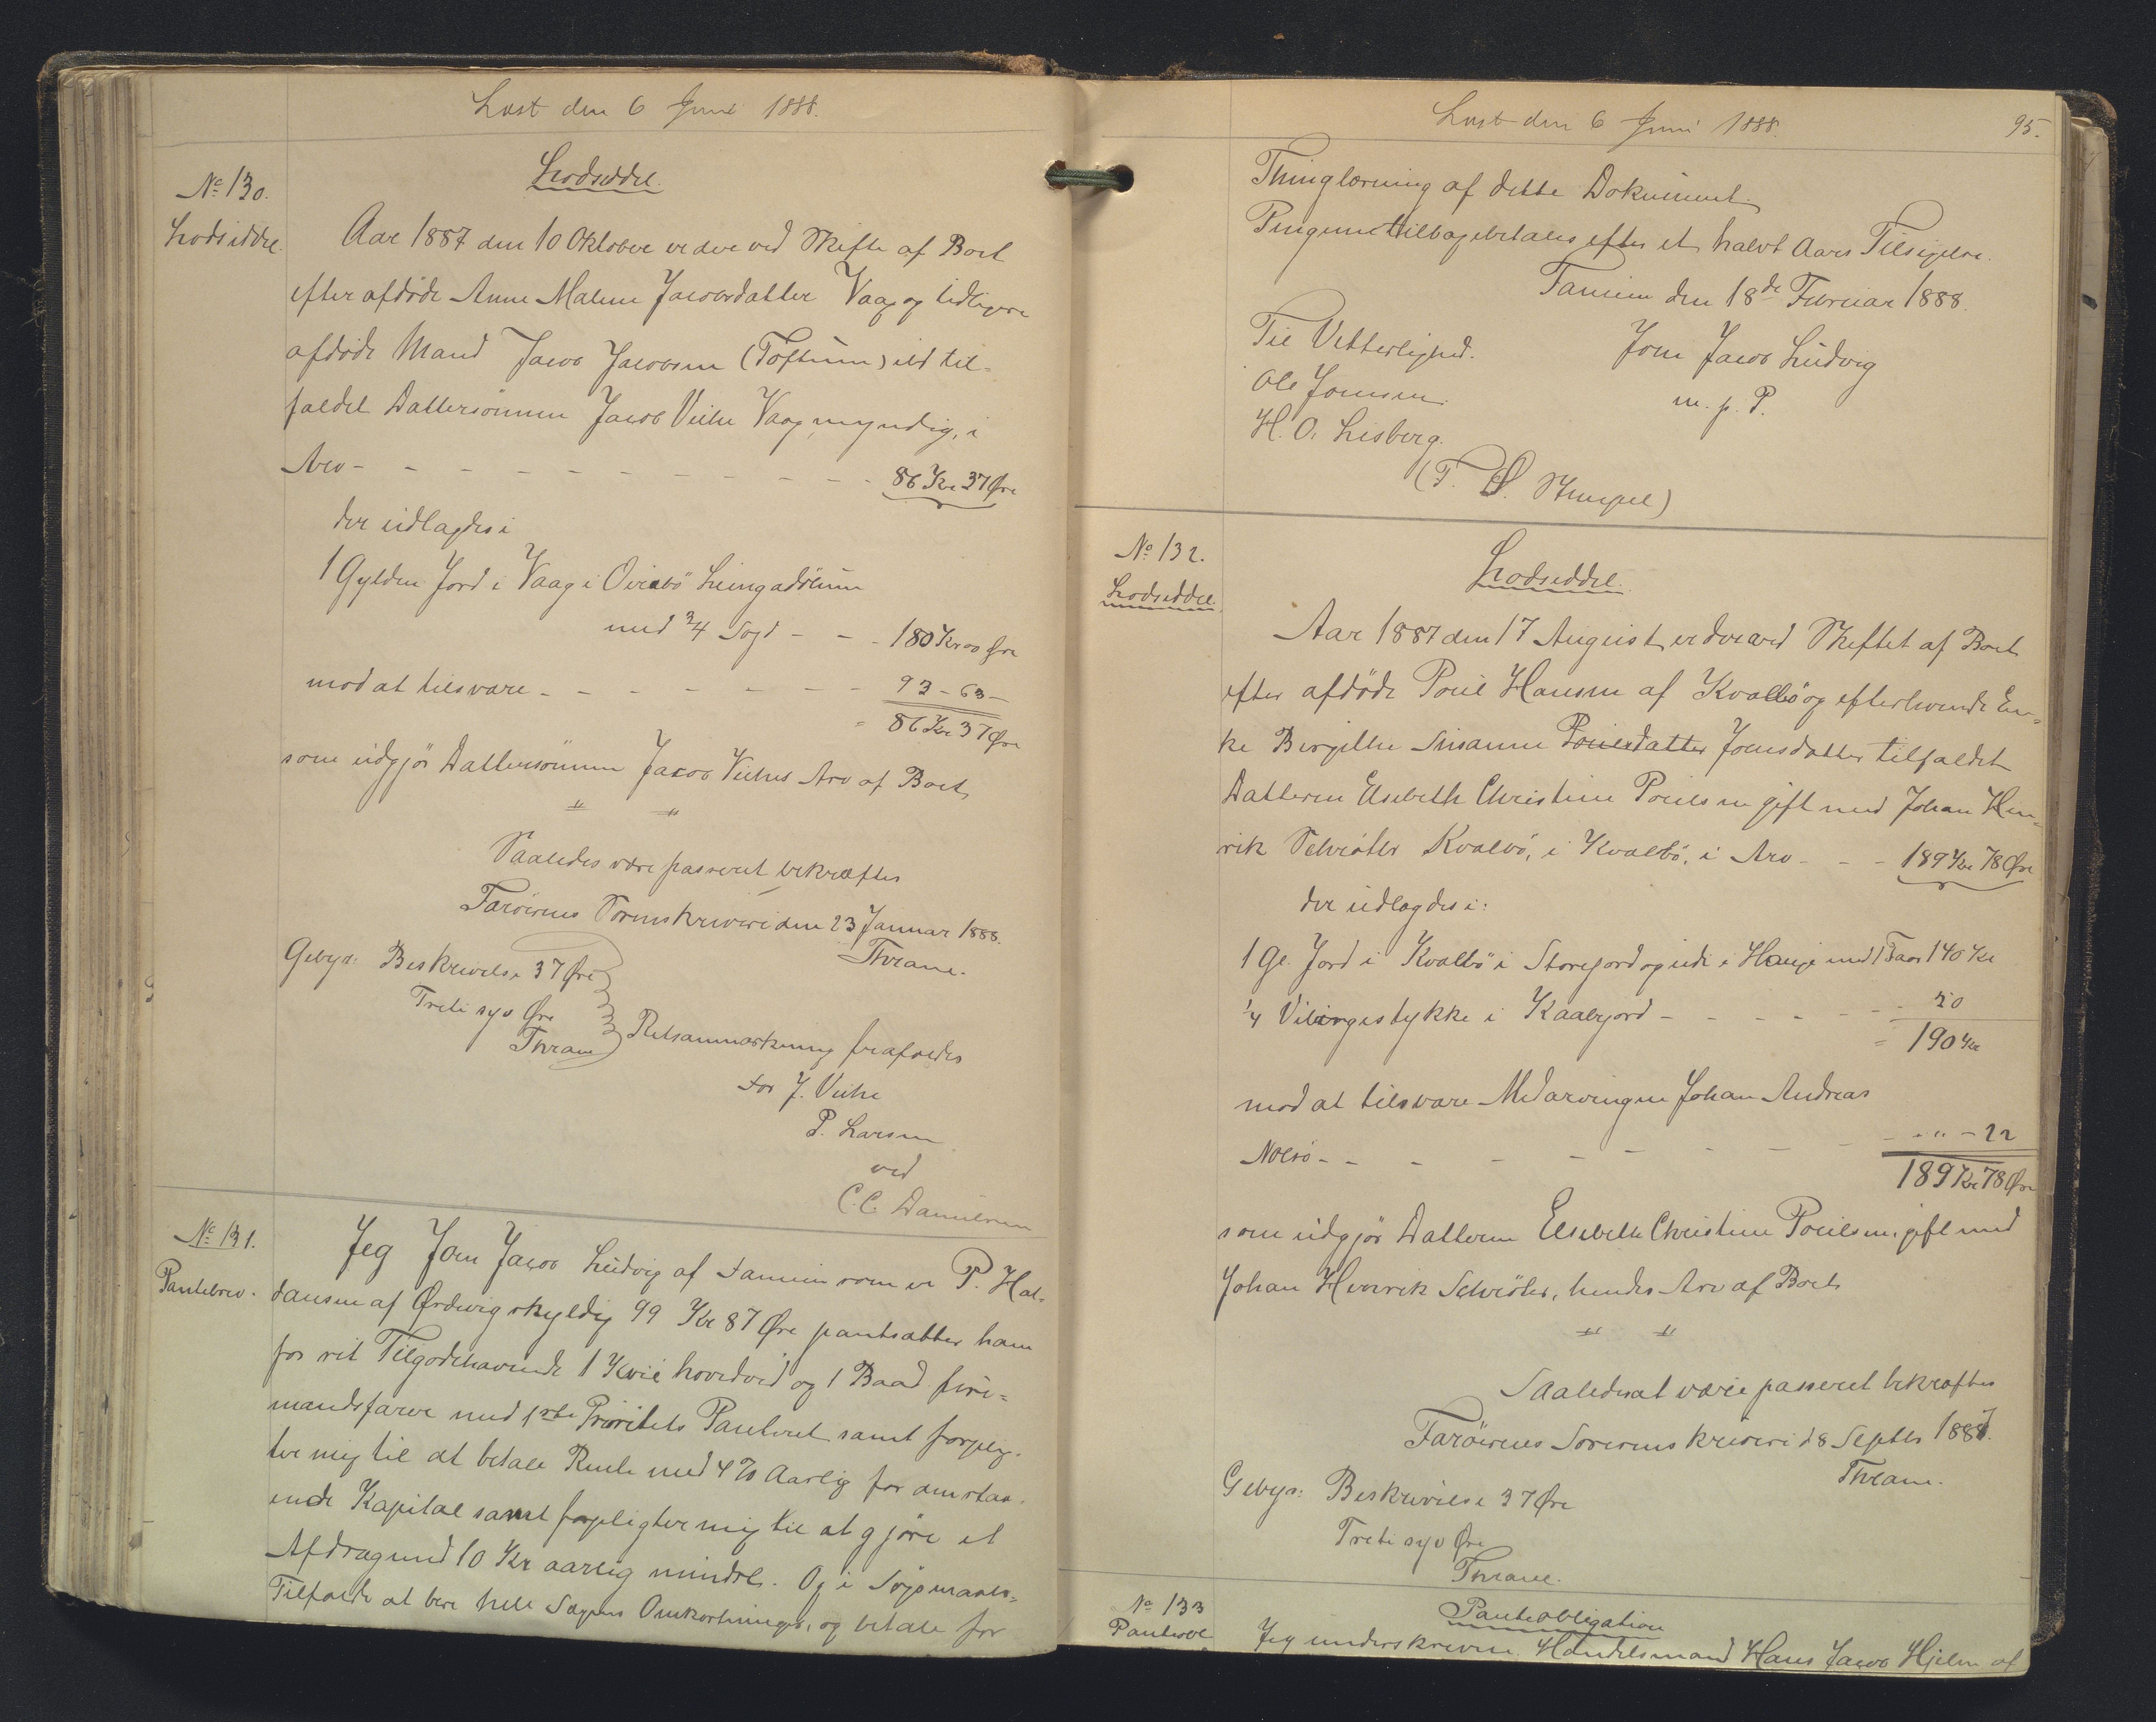 Læst den 6 Juni 1888.
No 130.
Lodseddel.
Lodseddel.
Aar 1887 den 10 Oktober er der ved Skifte af Boet
efter afdöde Anne Malene Jacobsdatter Vaag og tidligere
afdöde Mand Jacob Jacobsen (Toftum) ibd til-
faldet Dattersönnen Jacob Viche Vaag, myndig, i
Arv - - - - - - - - - - 86 Kr 37 Øre
der udlagdes i
1 Gylden Jord i Vaag i Ovirabö
med 3/4 - - - 180 Kr 00 Øre
mod at tilsvare - - - - - - - 93 - 63 -
= 86 Kr 37 Øre
som udgjör Dattersönnen Jacob Viches Arv af Boet
" "
Saaledes være passeret bekræftes
Færöernes Sorenskriveri den 23 Januar 1888.
Thrane.
Gebyr: Beskrivelse 37 Øre
Treti syv Øre
Thrane
Retsanmærkning frafaldes
for J. Viche
P. Larsen
ved
C. C. Danielsen
No 131.
Pantebrev.
Jeg Joen Jacob Ludvig af Famien som er P. Hal-
dansen af Ørdevig skyldig 99 Kr 87 Øre pantsætter ham
for sit Tilgodehavende 1 Kvie hovedvid og 1 Baad firi-
mandsfarve med 1ste Prioritets Panteret samt forplig-
ter mig til at betale Rente med 4 % Aarlig for omstaa-
ende Kapital samt forpligter mig til at gjöre et
Afdrag med 10 Kr aarlig mindst. Og i Sögsmaals-
Tilfælde at bære hele Sagens Omkostninger, og betale for
Læst den 6 Juni 1888.
95.
Thinglæsning af dette Dokument.
Pengene tilbagebetales efter et halvt Aars Tilsigelse.
Famien den 18de Februar 1888.
Til Vitterlighed.
Joen Jacob Ludvig
m. p. P.
Ole Joensen.
H. O. Lisberg.
(T. Ø. Stempel)
No 132.
Lodseddel.
Lodseddel.
Aar 1887 den 17 August er der ved Skiftet af Boet
efter afdöde Poul Hansen af Kvalbö og efterlevende En-
ke Birgithe Susanne Poulsdatter Joensdatter tilfaldet
Datteren Elsebeth Christine Poulsen gift med Johan Hen-
rik Schröter Kvalbö, i Kvalbö, i Arv - - - 189 Kr 78 Øre
der udlagdes i:
1 Gl. Jord i Kvalbö i Storejord og udi i Hauge med 1 Faar 140 Kr
1/4 Vilingistykke i Kaalgjord - - - - - - 50
= 190 Kr
mod at tilsvare Medarvingen Johan Andreas
Nolsö - - - - - - - - - - " - 22
189 Kr 78 Øre
som udgjör Datteren Elsebeth Christine Poulsen, gift med
Johan Henrik Schröter, hendes Arv af Boet
" "
Saaledes at være passeret bekræftes
Færöernes Sorenskriveri d 8 Septbr 1887.
Thrane.
Gebyr: Beskrivelse 37 Øre
Treti syv Øre
Thrane.
No 133
Panteobl
Panteobligation
Jeg underskrevne Handelsmand Hans Jacob Hjelm af